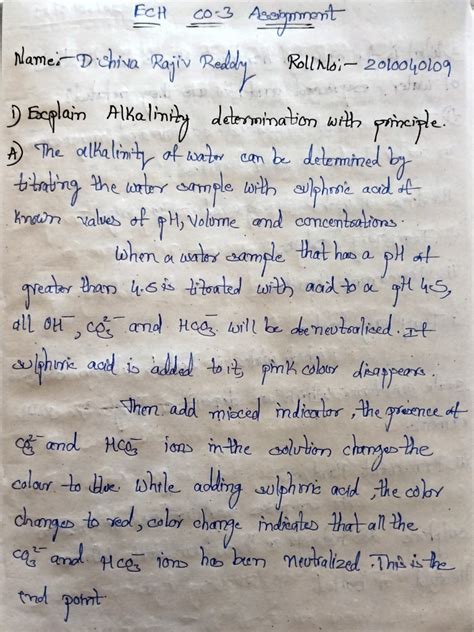 ECH CO-3 Assignment
Name:- D.Shiva Rajiv Reddy Roll No:- 2010040109
1) Explain Alkalinity determination with principle.
A) The alkalinity of water can be determined by
titrating the water sample with sulphuric acid of
known values of pH, Volume and concentrations.
When a water sample that has a pH of
greater than 4.5 is titrated with acid to a pH 4.5,
all OH⁻, CO₃²⁻ and HCO₃⁻ will be neutralised. If
sulphuric acid is added to it, pink colour disappears.
Then add mixed indicator, the presence of
CO₃²⁻ and HCO₃⁻ ions in the solution changes the
colour to blue. While adding sulphuric acid, the color
changes to red, color change indicates that all the
CO₃²⁻ and HCO₃⁻ ions has been neutralized. This is the
end point